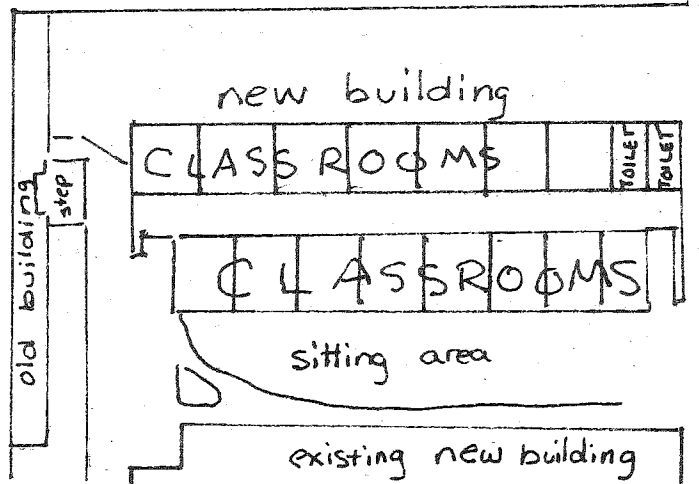 new building
CLASSROOMS
TOILET
TOILET
step
old building
CLASSROOMS
sitting area
existing new building